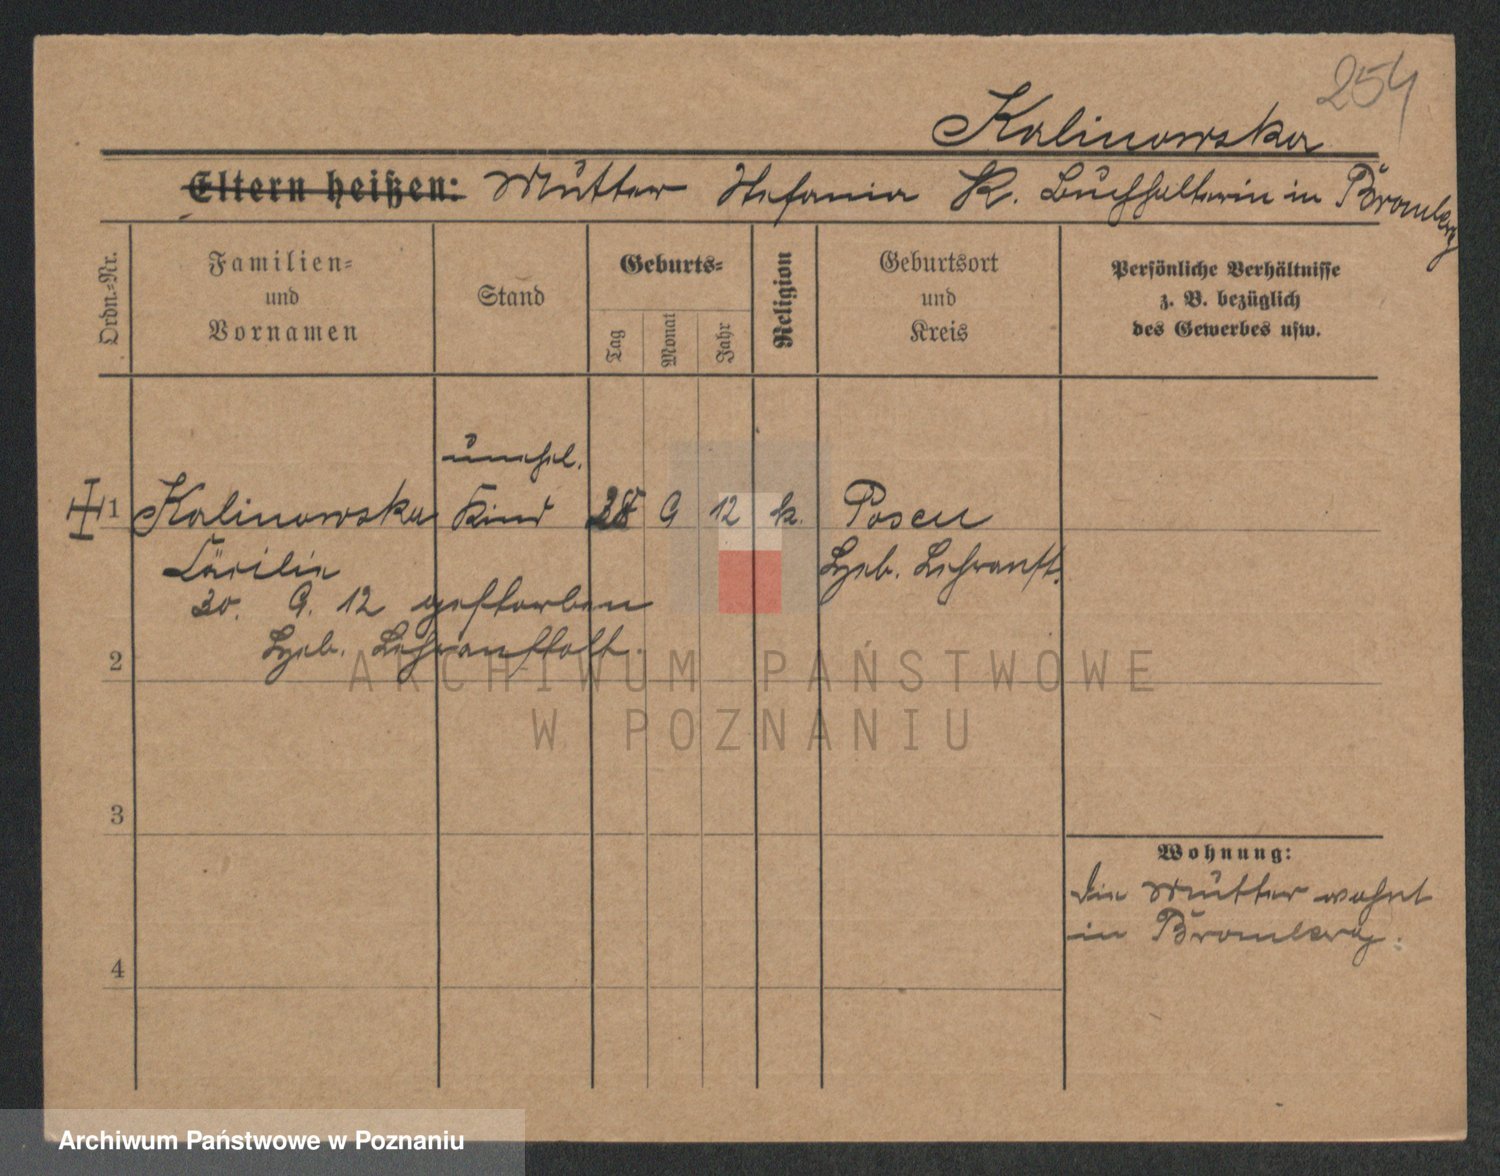 254
Kalinowska
Eltern heißen: Mutter Stefania K. Buchhalterin in Bromberg
Ordn.-Nr.
Familien-
und
Vornamen
Stand
Geburts-
Tag
Monat
Jahr
Religion
Geburtsort
und
Kreis
Persönliche Verhältnisse
z. B. bezüglich
des Gewerbes usw.
unehel.
1 Kalinowska Kind 28 9 12 k. Posen
Cäcilie
Hgeb. Lehranst.
30. 9. 12 gestorben
Hgeb. Lehranstalt.
2
3
4
Wohnung:
Die Mutter wohnt
in Bromberg.
ARCHIWUM PAŃSTWOWE
W POZNANIU
Archiwum Państwowe w Poznaniu